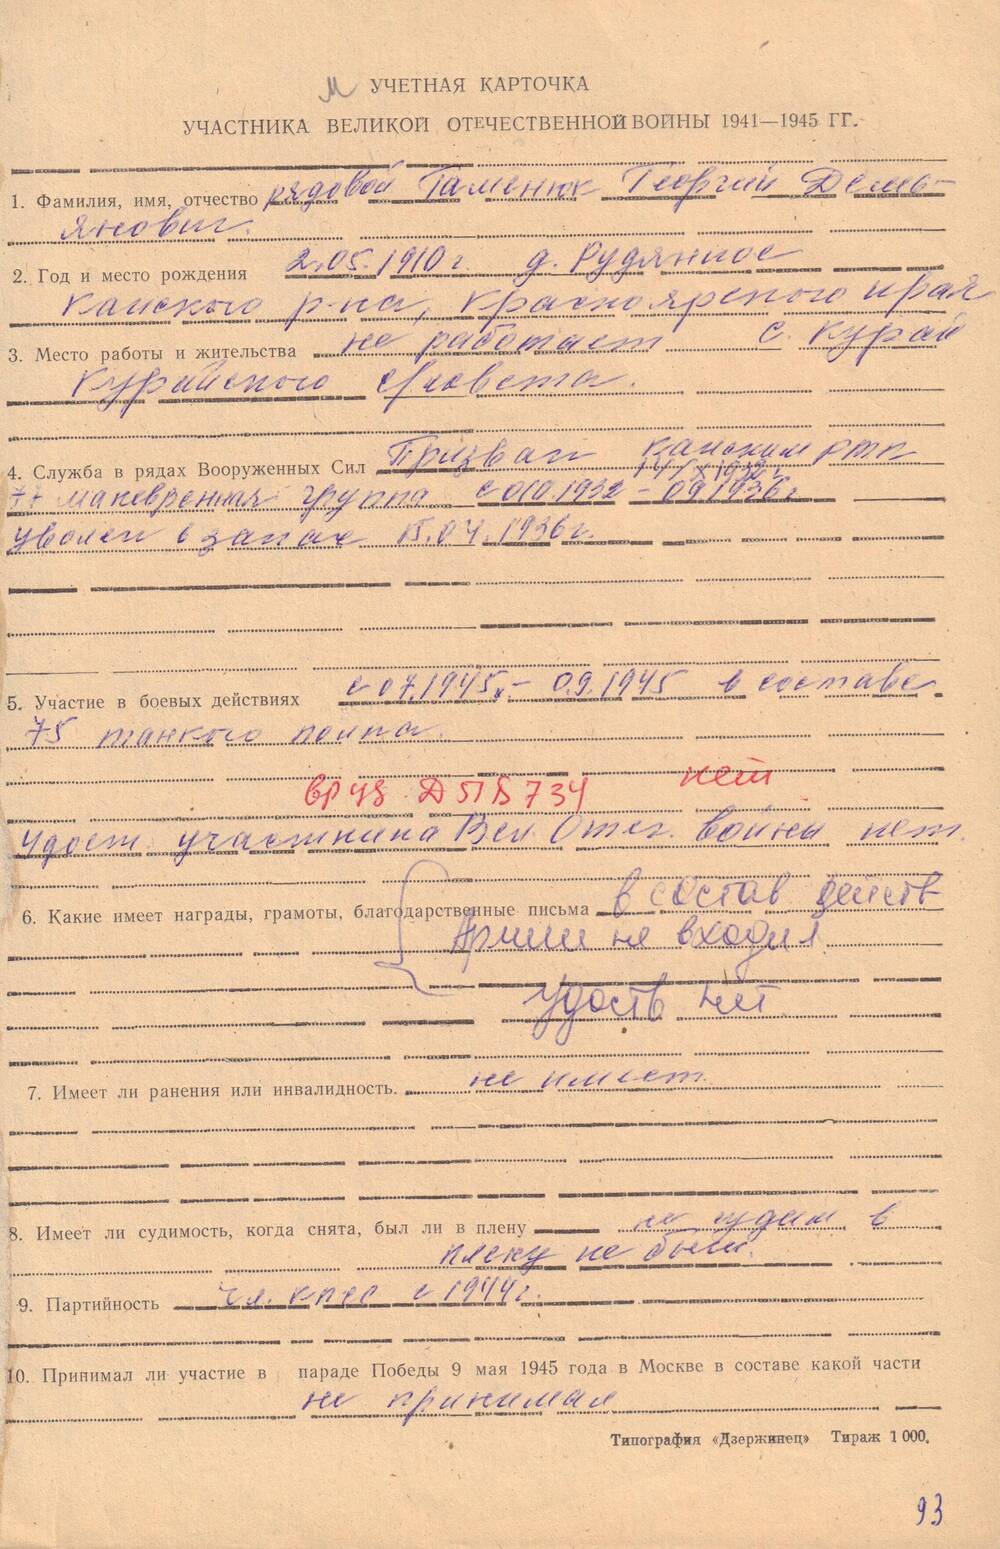 М УЧЕТНАЯ КАРТОЧКА
УЧАСТНИКА ВЕЛИКОЙ ОТЕЧЕСТВЕННОЙ ВОЙНЫ 1941—1945 ГГ.
1. Фамилия, имя, отчество рядовой Гаменюк Георгий Демь-
янович.
2. Год и место рождения 2.05.1910 г. д. Рудянное
Канского р-на, Красноярского края
3. Место работы и жительства не работает с. Курай
Курайского с/совета.
4. Служба в рядах Вооруженных Сил Призван Канским
77 маневренная группа с 010.1932 - 09.1936 г
уволен в запас 15.04.1936 г.
5. Участие в боевых действиях с 07.1945 - 09.1945 в составе
75 танкого полка.
вр уд ДПБ 734 нет
Удост. участника Вел. Отеч. войны нет.
6. Какие имеет награды, грамоты, благодарственные письма в состав действ
Армии не входил
Удоств нет
7. Имеет ли ранения или инвалидность. не имеет
8. Имеет ли судимость, когда снята, был ли в плену не судим в
плену не был.
9. Партийность чл. КПСС с 1944 г.
10. Принимал ли участие в параде Победы 9 мая 1945 года в Москве в составе какой части
не принимал
Типография «Дзержинец» Тираж 1 000.
93